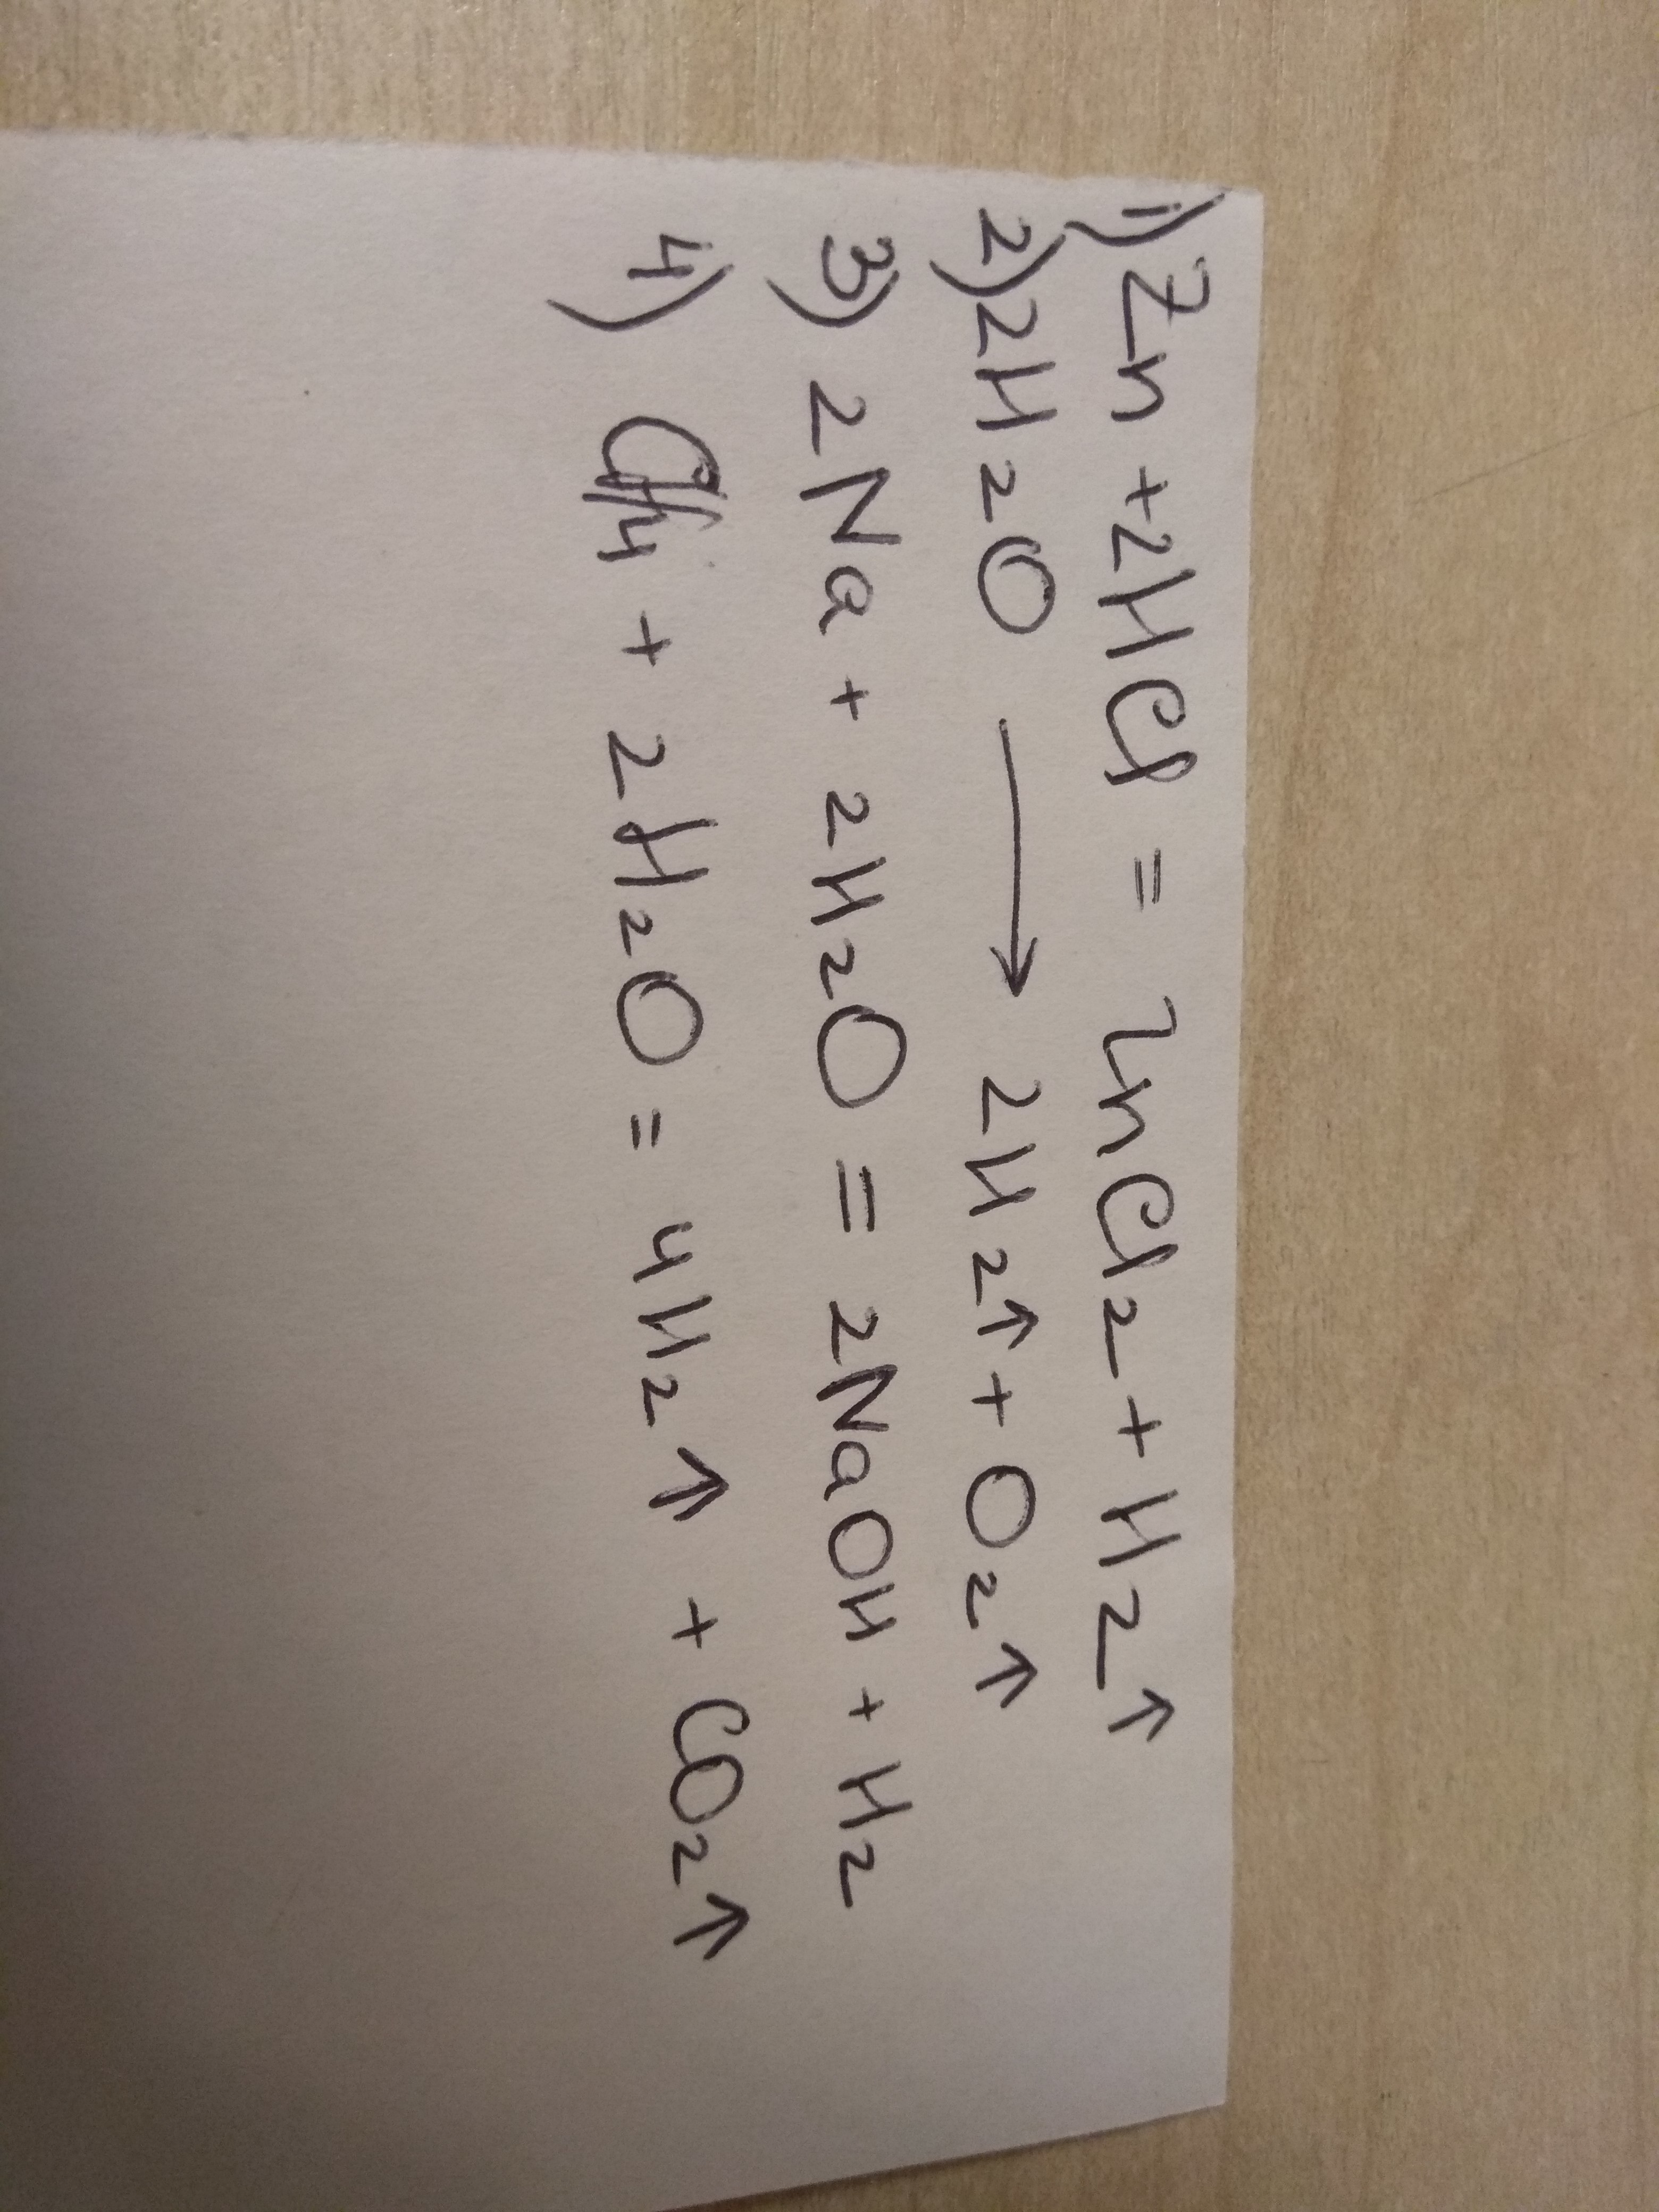 1) Zn + 2HCl = ZnCl2 + H2↑
2) 2H2O → 2H2↑ + O2↑
3) 2Na + 2H2O = 2NaOH + H2
4) CH4 + 2H2O = 4H2↑ + CO2↑